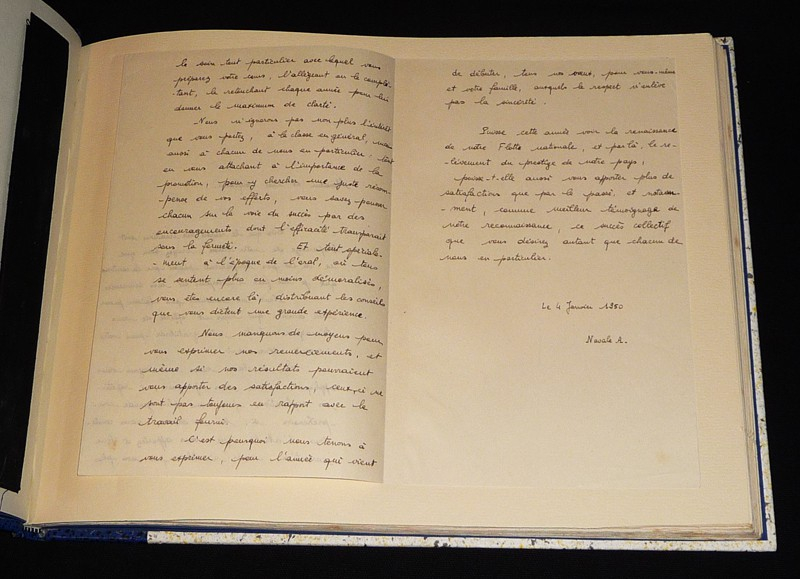 le soin tout particulier avec lequel vous
préparez votre cours, l'allégeant ou le complé-
-tant, le retouchant chaque année pour lui
donner le maximum de clarté.
Nous n'ignorons pas non plus l'intérêt
que vous portez, à la classe en général, mais
aussi à chacun de nous en particulier, tout
en vous attachant à l'importance de la
promotion, pour y chercher une juste récom-
-pense de vos efforts, vous savez pousser
chacun sur la voie du succès par des
encouragements dont l'efficacité transparait
sous la fermeté. Et tout spéciale-
-ment à l'époque de l'oral, où tous
se sentent plus ou moins démoralisés,
vous êtes encore là, distribuant les conseils
que vous dictent une grande expérience.
Nous manquons de moyens pour
vous exprimer nos remerciements, et
même si nos résultats pouvaient
vous apporter des satisfactions, ceux-ci ne
sont pas toujours en rapport avec le
travail fourni.
C'est pourquoi nous tenons à
vous exprimer, pour l'année qui vient
de débuter, tous nos vœux, pour vous-même
et votre famille, auxquels le respect n'enlève
pas la sincérité.
Puisse cette année voir la renaissance
de notre Flotte nationale, et par là, le re-
-lèvement du prestige de notre pays,
puisse-t-elle aussi vous apporter plus de
satisfactions que par le passé, et notam-
-ment, comme meilleur témoignage de
notre reconnaissance, ce succès collectif
que vous désirez autant que chacun de
nous en particulier.
Le 4 Janvier 1950
Navale A.